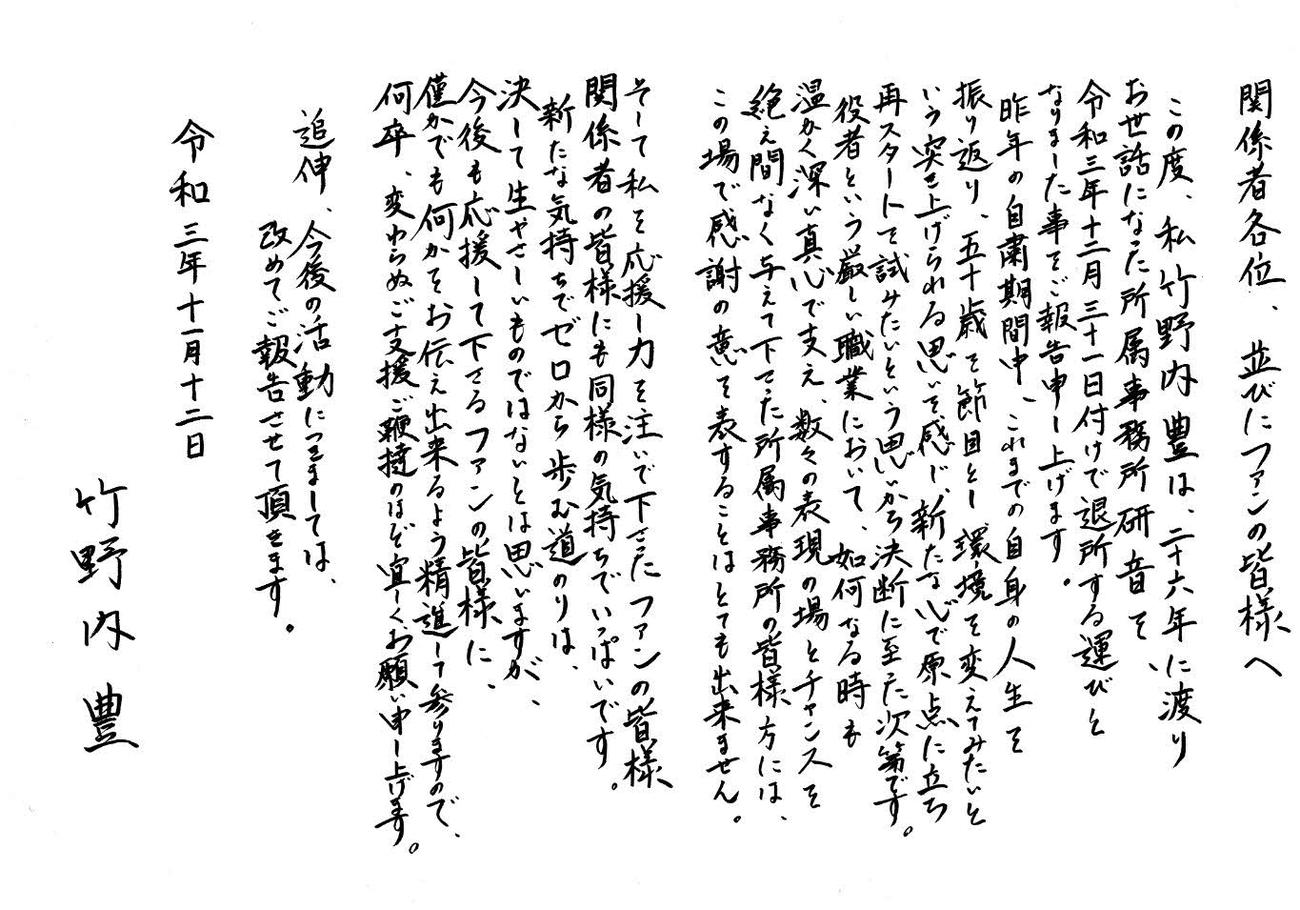 関係者各位、並びにファンの皆様へ
この度、私竹野内豊は、二十六年に渡り
お世話になった所属事務所研音を、
令和三年十二月三十一日付けで退所する運びと
なりました事をご報告申し上げます。
昨年の自粛期間中、これまでの自身の人生を
振り返り、五十歳を節目とし環境を変えてみたいと
いう突き上げられる思いを感じ、新たな心で原点に立ち
再スタートを試みたいという思いから決断に至った次第です。
役者という厳しい職業において、如何なる時も
温かく深い真心で支え、数々の表現の場とチャンスを
絶え間なく与えて下さった所属事務所の皆様方には、
この場で感謝の意を表することはとても出来ません。
そして私を応援し力を注いで下さったファンの皆様
関係者の皆様にも同様の気持ちでいっぱいです。
新たな気持ちでゼロから歩む道のりは、
決して生やさしいものではないとは思いますが、
今後も応援して下さるファンの皆様に、
僅かでも何かをお伝え出来るよう精進して参りますので、
何卒、変わらぬご支援ご鞭撻のほど宜しくお願い申し上げます。
追伸、今後の活動につきましては、
改めてご報告させて頂きます。
令和三年十一月十二日
竹野内豊